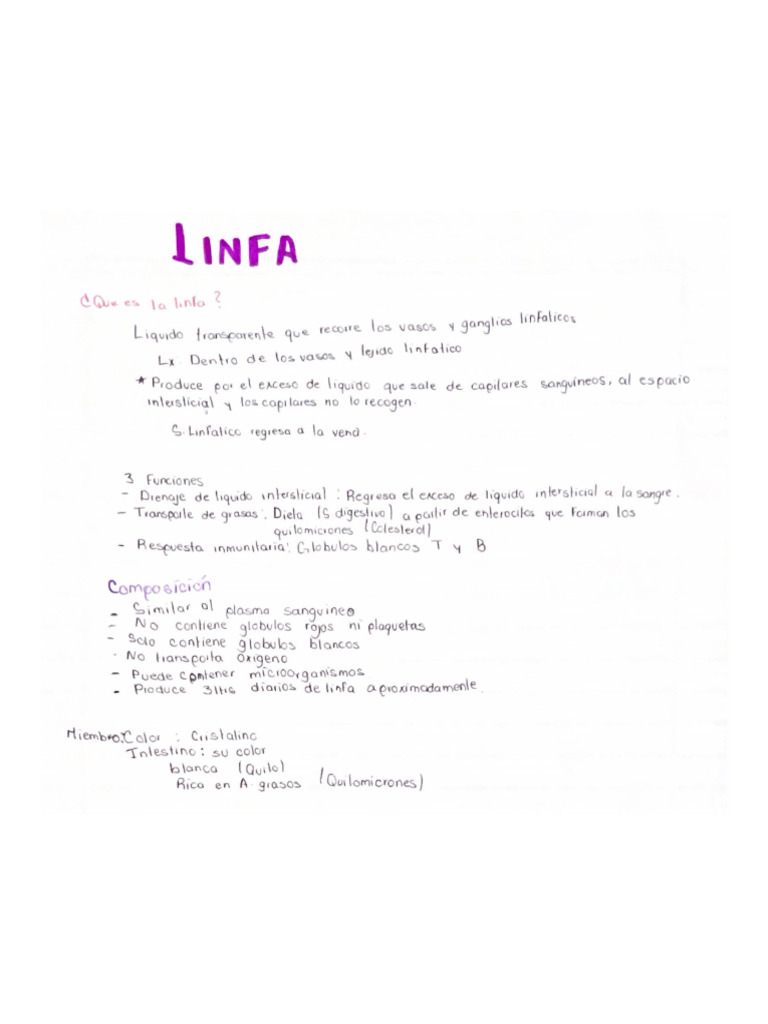 LINFA
¿Que es la linfa?
Liquido transparente que recorre los vasos y ganglios linfaticos
Lx Dentro de los vasos y tejido linfatico
* Produce por el exceso de liquido que sale de capilares sanguineos, al espacio
intersticial y los capilares no lo recogen.
S. Linfatico regresa a la vena.
3 Funciones
- Drenaje de liquido intersticial : Regresa el exceso de liquido intersticial a la sangre.
- Transporte de grasas: Dieta (S digestivo) a partir de enterocitos que forman los
quilomicrones (Colesterol)
- Respuesta inmunitaria: Globulos blancos T y B
Composición
- Similar al plasma sanguineo
- No contiene globulos rojos ni plaquetas
- Solo contiene globulos blancos
- No transporta oxigeno
- Puede contener microorganismos
- Produce 3 ltrs diarios de linfa aproximadamente.
Miembro: Color : Cristalino
Intestino : su color
blanca (Quilo)
Rica en A. grasos (Quilomicrones)